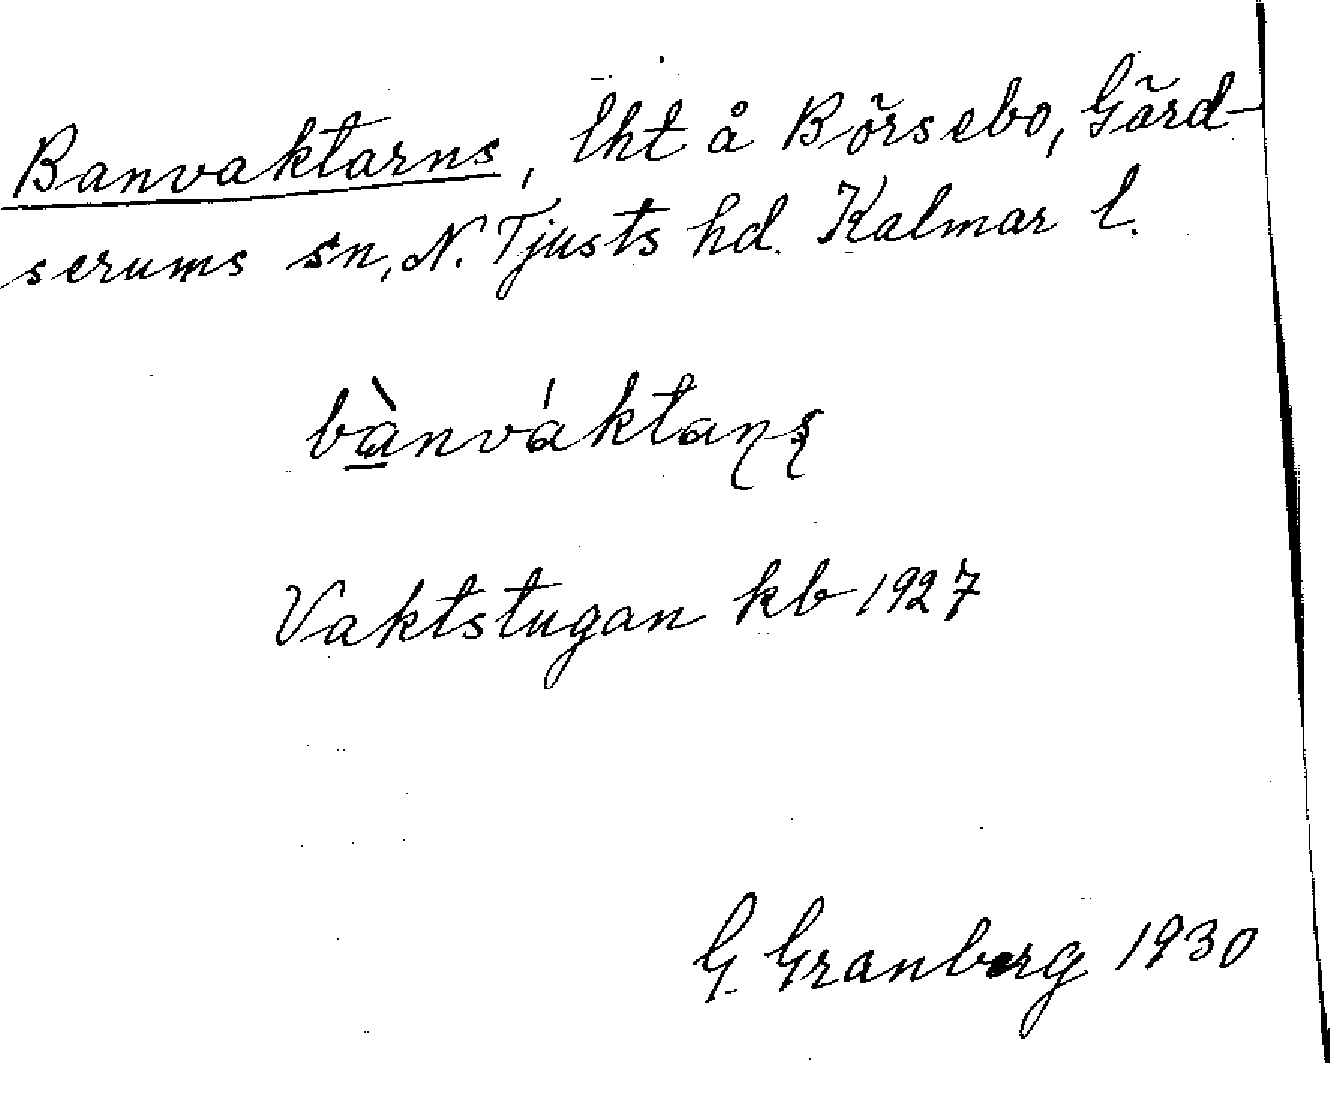 Banvaktarns, lht å Börsebo, Gärd-
serums sn, N. Tjusts hd. Kalmar l.
bà̱nváktaɳʂ
Vaktstugan kb 1927
G. Granberg 1930